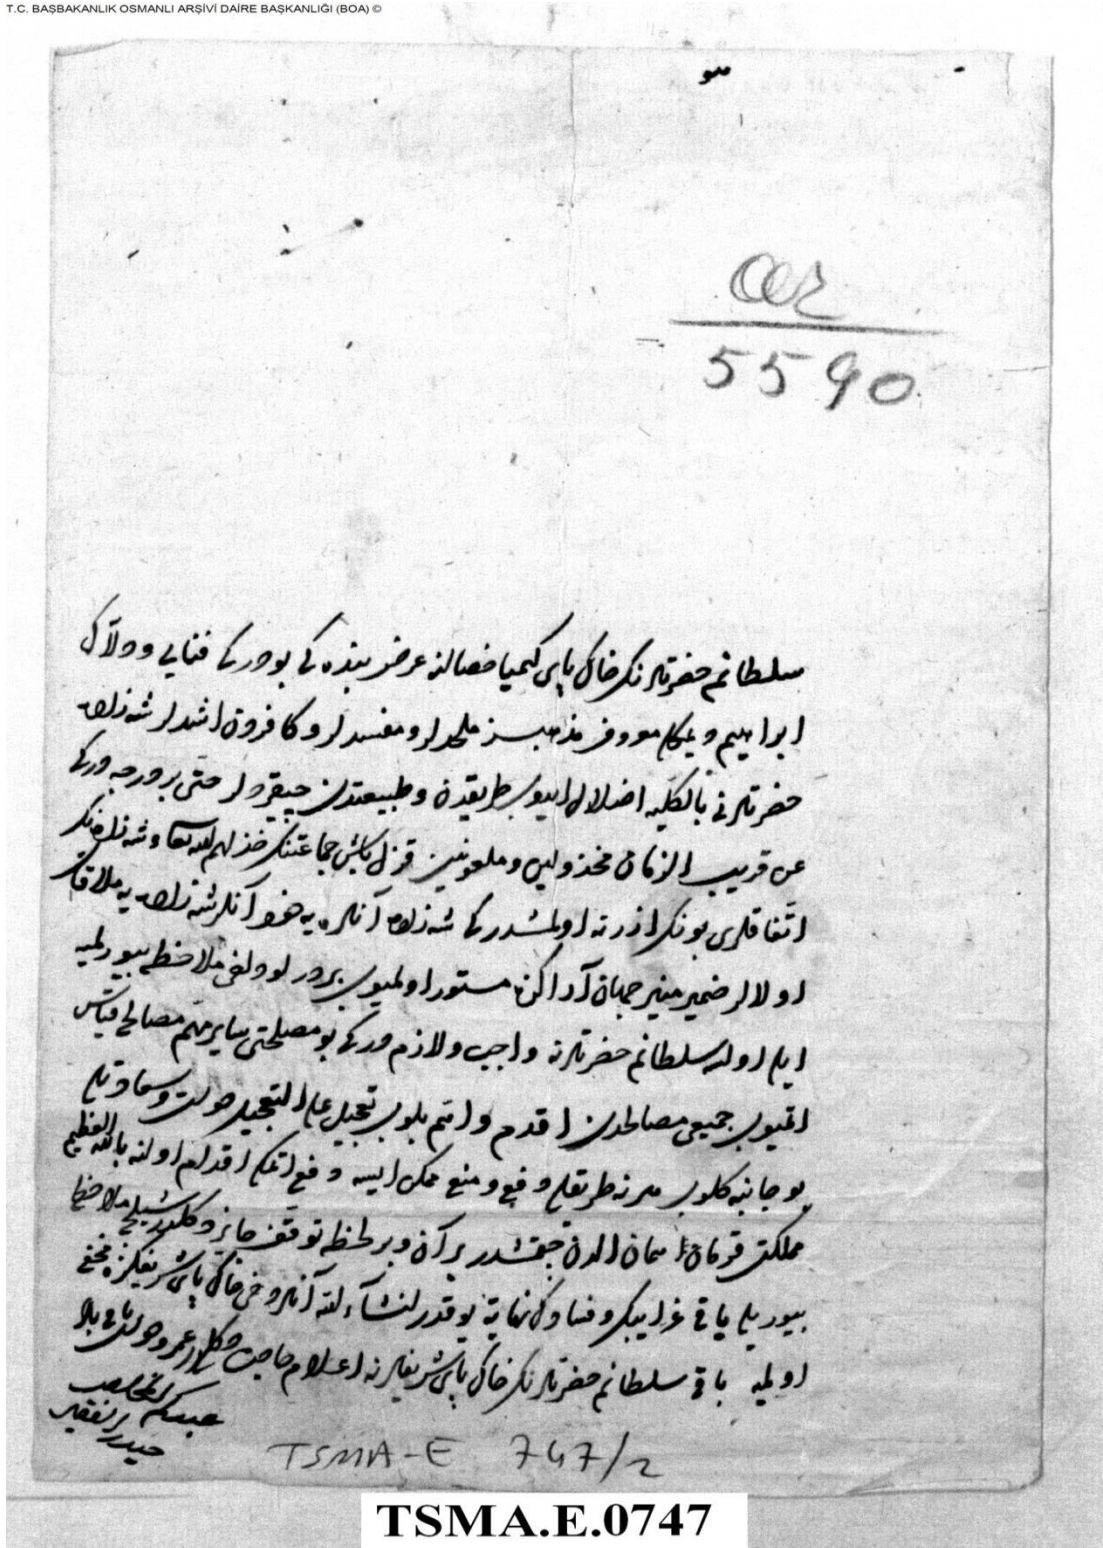 T.C. BAŞBAKANLIK OSMANLI ARŞİVİ DAİRE BAŞKANLIĞI (BOA) ©
هو
5590
سلطانم حضرتلرنك خاك پاى كيميا خصالنه عرض بنده كى بودركه
ابراهيم مذهبسز ملحدلر و مفسدلر و كافردن اشدلر شهزاده
حضرتلرنى بالكليه اضلال ايدوب طريقدن و طبيعتدن چيقردلر حتى بر درجه دركه
عن قريب الزمان مخذولين و ملعونين قزل باش جماعتنك خذلهم الله تعالى و شهزاده نك
اتفاقلرى بونك اوزرنه اولمشدركه شهزاده آنلره يه خود آنلر شهزاده يه ملاقات
اولالر ضمير منير جهان آرا مستور اولميوب ملاحظه بيورلميه
ايله اولسه سلطانم حضرتلرنه واجب و لازم دركه بو مصلحتى ساير مهم مصالحه قياس
اتميوب جميع مصالحدن اقدم و اهم بلوب تعجيل على التعجيل دولت و سعادتله
بو جانبه كلوب هر نه طريقله دفع و منع ممكن ايسه دفع اتمكه اقدام اولنه بالله العظيم
مملكت قرمان الدن چقمشدر بر آن و بر لحظه توقف جايز دكلدر ملاحظه
بيوريله باقى غرايبك و نهايتى يوقدر انشاء الله آنلر دخى خاك پاى شريفكزه مخفى
اولميه باقى سلطانم حضرتلرنك خاك پاى شريفلرنه اعلام حاجت دكلدر عمر و دولت باقى باد
الفقير
حيدر
TSMA-E 747/2
TSMA.E.0747